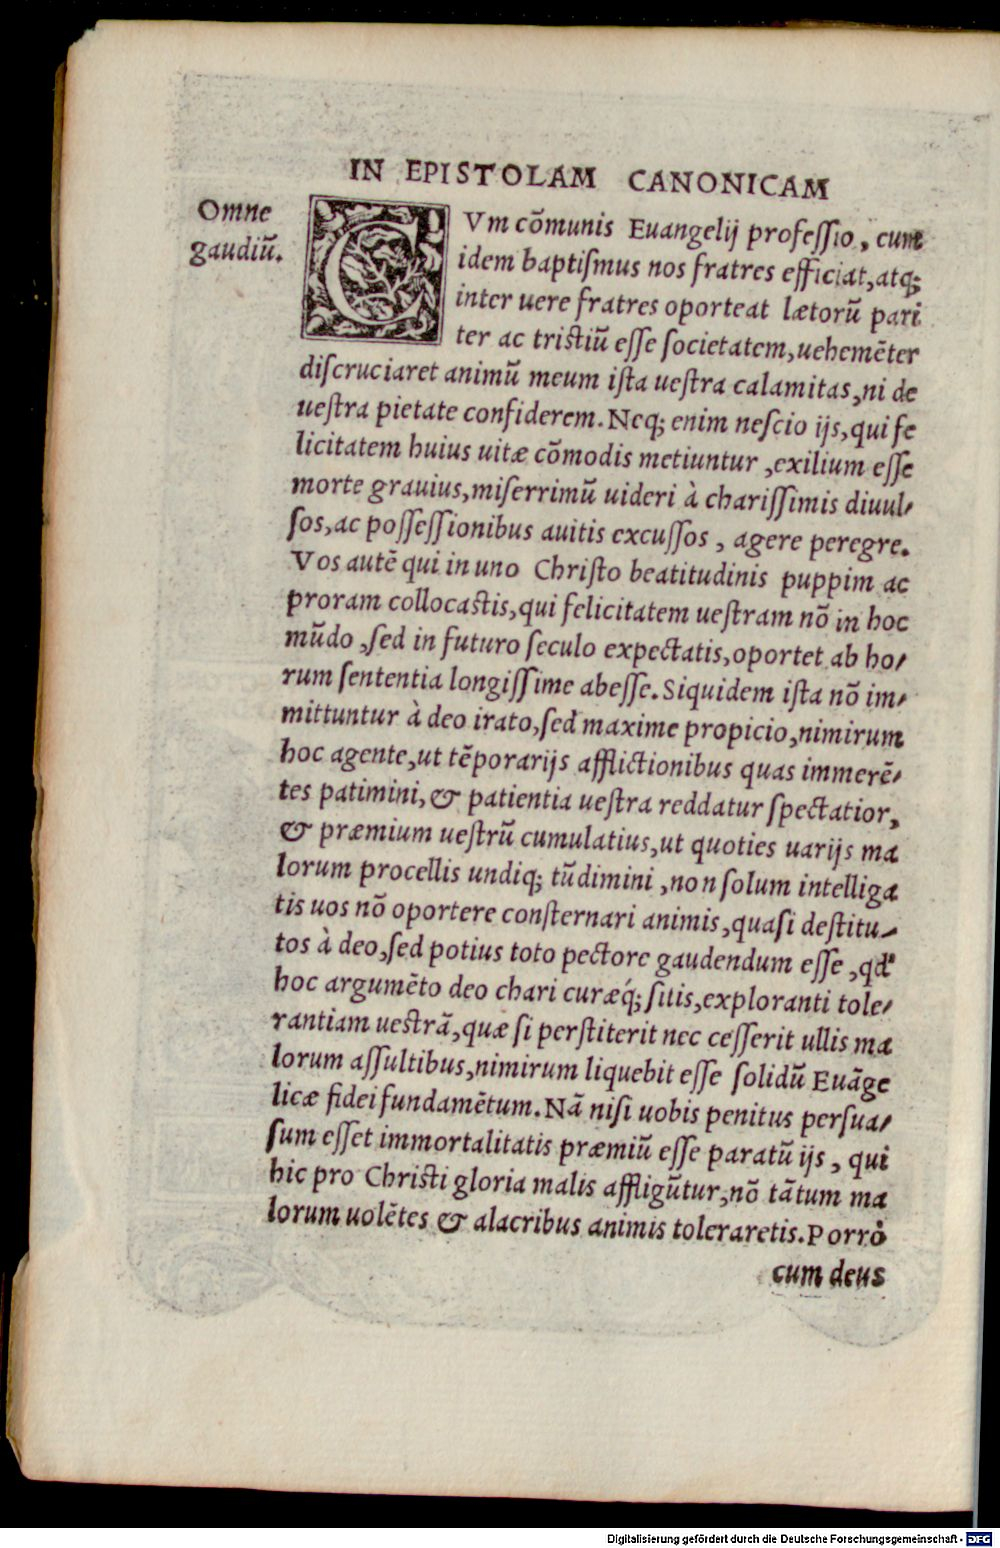 IN EPISTOLAM CANONICAM
Omne
gaudiũ.
CVm cõmunis Euangelij professio, cum
idem baptiſmus nos fratres efficiat, atq;
inter uere fratres oporteat lætorũ pari
ter ac triſtiũ eſſe ſocietatem, uehemẽter
diſcruciaret animũ meum iſta ueſtra calamitas, ni de
ueſtra pietate confiderem. Neq; enim neſcio ijs, qui fe
licitatem huius uitæ cõmodis metiuntur, exilium eſſe
morte grauius, miſerrimũ uideri à chariſſimis diuul⸗
ſos, ac poſſeſſionibus auitis excuſſos, agere peregre.
Vos autẽ qui in uno Chriſto beatitudinis puppim ac
proram collocaſtis, qui felicitatem ueſtram nõ in hoc
mũdo, ſed in futuro ſeculo expectatis, oportet ab ho⸗
rum ſententia longiſſime abeſſe. Siquidem iſta nõ im⸗
mittuntur à deo irato, ſed maxime propicio, nimirum
hoc agente, ut tẽporarijs afflictionibus quas immerẽ⸗
tes patimini, & patientia ueſtra reddatur ſpectatior,
& præmium ueſtrũ cumulatius, ut quoties uarijs ma
lorum procellis undiq; tũdimini, non ſolum intelliga
tis uos nõ oportere conſternari animis, quaſi deſtitu⸗
tos à deo, ſed potius toto pectore gaudendum eſſe, qđ
hoc argumẽto deo chari curæq́; ſitis, exploranti tole⸗
rantiam ueſtrã, quæ ſi perſtiterit nec ceſſerit ullis ma
lorum aſſultibus, nimirum liquebit eſſe ſolidũ Euãge
licæ fidei fundamẽtum. Nã niſi uobis penitus perſua⸗
ſum eſſet immortalitatis præmiũ eſſe paratũ ijs, qui
hic pro Chriſti gloria malis affligũtur, nõ tãtum ma
lorum uolẽtes & alacribus animis toleraretis. Porrò
cum deus
Digitalisierung gefördert durch die Deutsche Forschungsgemeinschaft - DFG